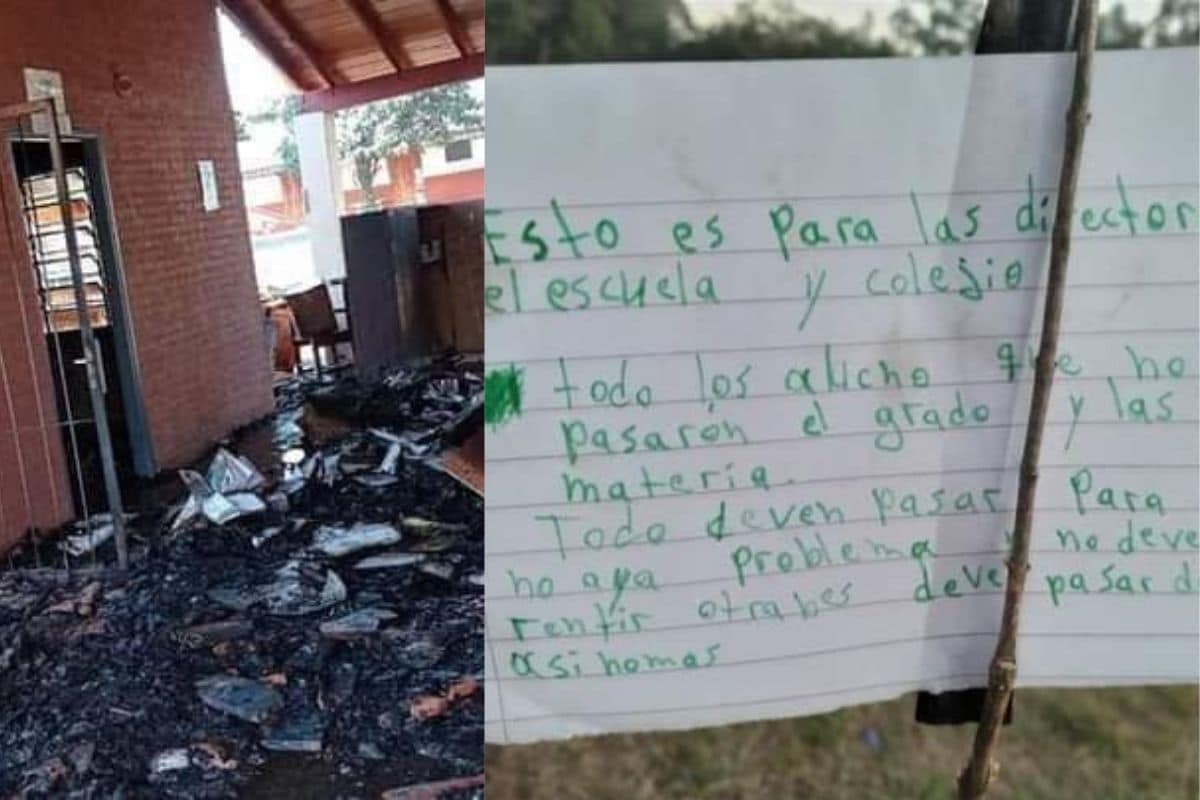 Esto es para las director
el escuela y colejio
todo los alucho que no
pasaron el grado y las
materia.
Todo deven pasar para
no aya problema y no deve
rentir otrabes deve pasar d
asi nomas